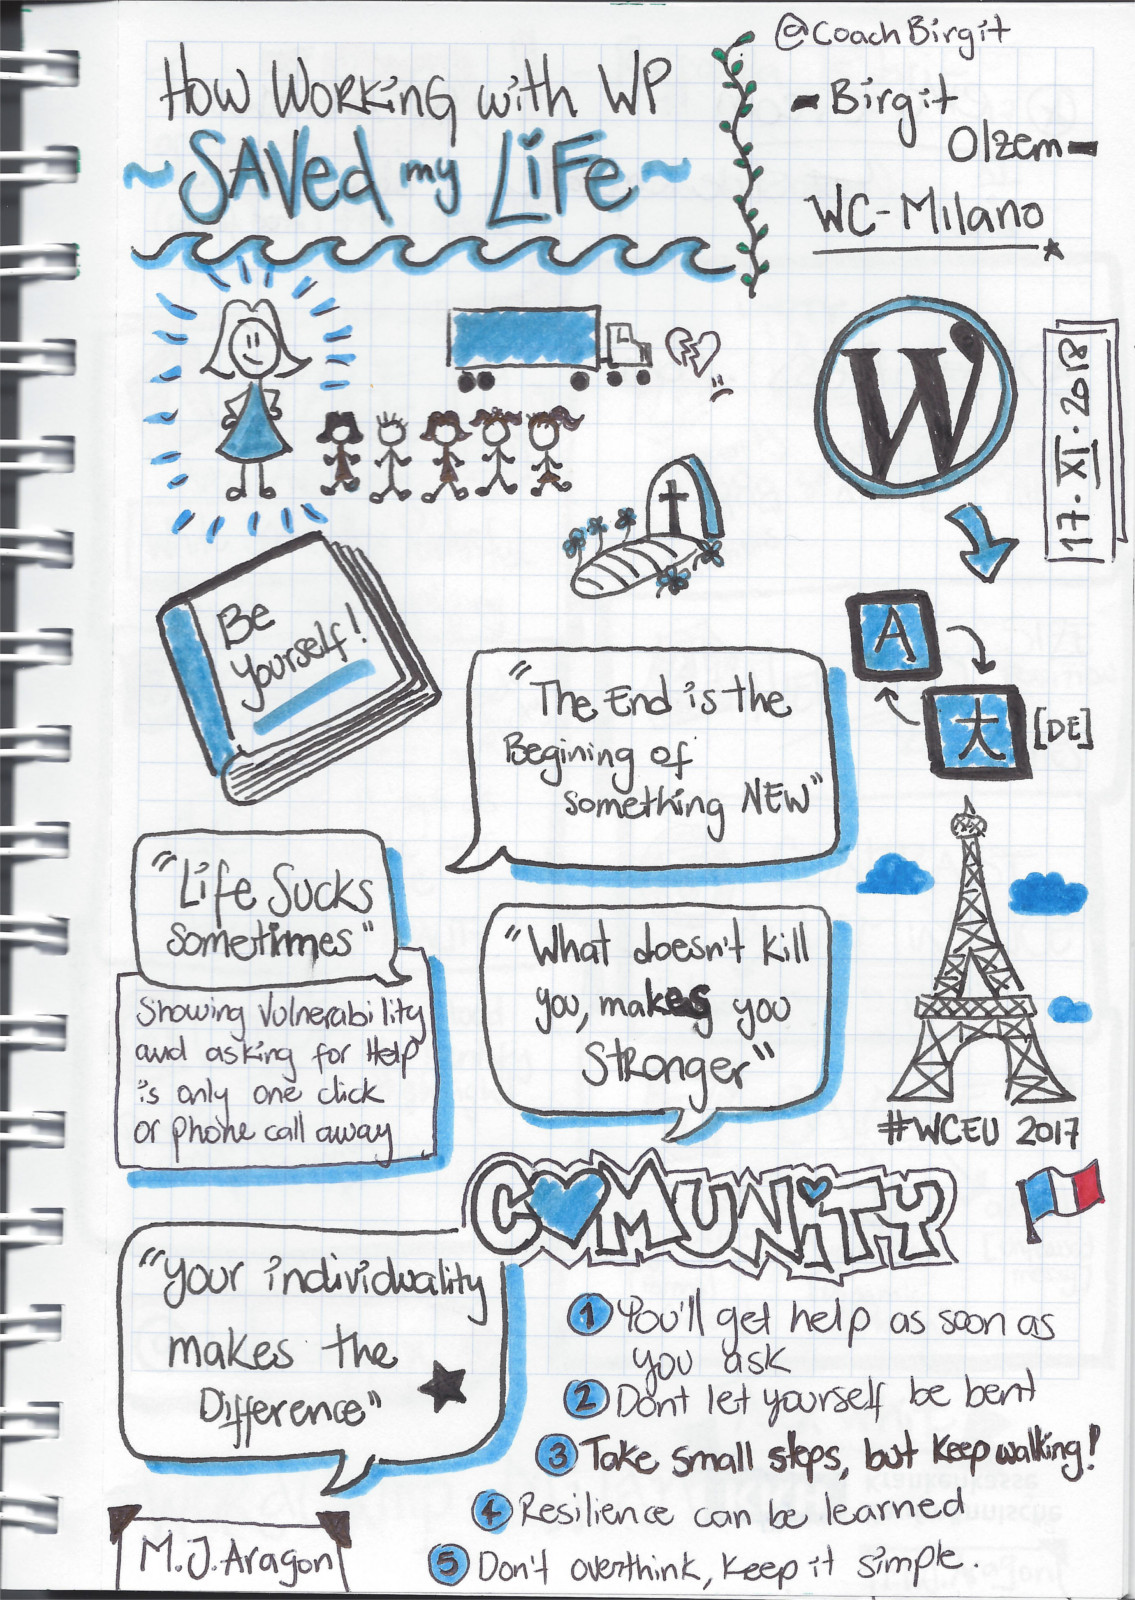 @CoachBirgit
How Working with WP
~ Saved my Life ~
- Birgit
Olzem -
WC-Milano
17·XI·2018
W
Be
yourself!
A
大
[DE]
"The End is the
Begining of
something NEW"
"Life Sucks
Sometimes"
Showing Vulnerability
and asking for Help
is only one click
or phone call away
"What doesn't kill
you, makes you
Stronger"
#WCEU 2017
COMUNITY
"Your individuality
makes the
Difference"
1 You'll get help as soon as
you ask
2 Dont let yourself be bent
3 Take small steps, but keep walking!
4 Resilience can be learned
5 Don't overthink, keep it simple.
M.J.Aragon